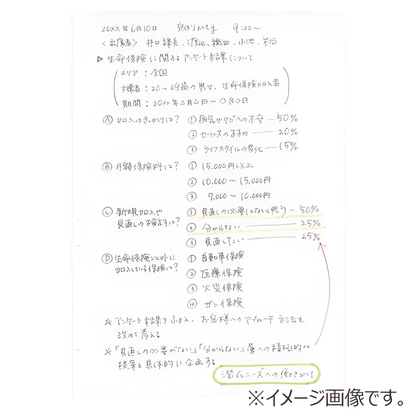 20XX年6月10日 9:00〜
〈出席者〉 井口課長、渡辺、織田、小池、
▶生命保険に関するアンケート結果について
エリア：全国
対象者：20〜69歳の男女、生命保険加入者
期間：20XX年△月△日〜○月○日
Ⓐ 加入のきっかけは？ ① 病気やケガへの不安 — 50%
② セールスのすすめ — 20%
③ ライフスタイルの変化 — 15%
Ⓑ 月額保険料は？ ① 15,000円以上
② 10,000〜15,000円
③ 7,000〜10,000
Ⓒ 新規加入や見直しの検討は？ ① 見直しの必要はないと思う — 50%
② 分からない — 25%
③ 見直したい — 25%
Ⓓ 生命保険以外に加入している保険は？ ① 自動車保険
② 医療保険
③ 火災保険
④ ガン保険
※アンケート結果をふまえ、お客様へのアプローチ方法を
改めて考える
※「見直しの必要がない」「分からない」層への積極的な
提案を具体的に企画する
潜在ニーズへの働きかけ
※イメージ画像です。